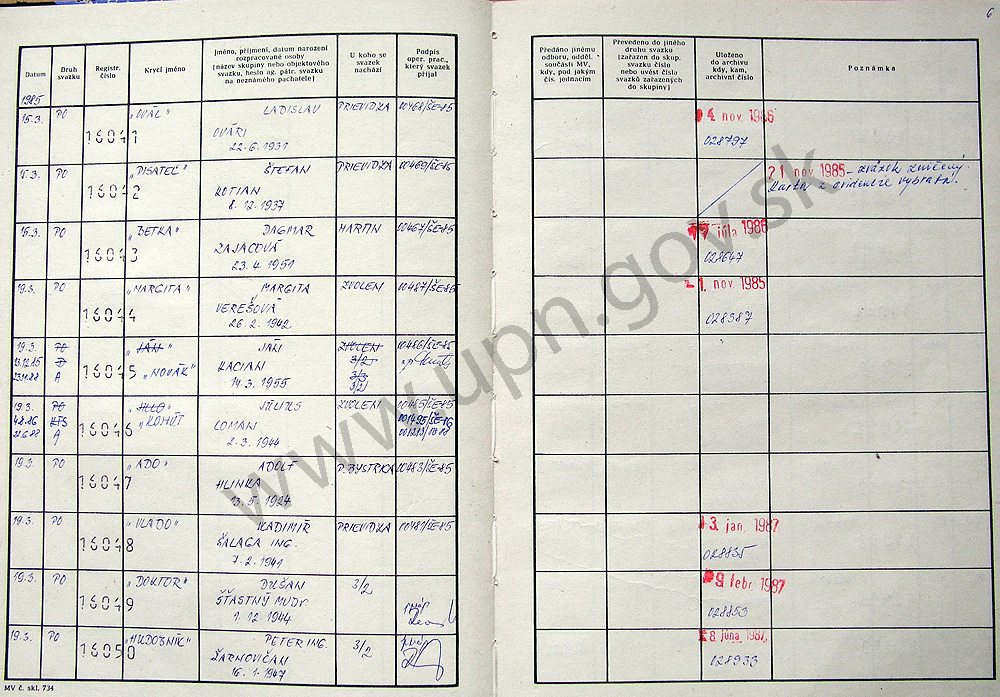 6
Datum
Druh svazku
Registr. číslo
Krycí jméno
Jméno, příjmení, datum narození rozpracované osoby (název skupiny nebo objektového svazku, heslo ag. pátr. svazku na neznámého pachatele)
U koho se svazek nachází
Podpis oper. prac., který svazek přijal
Předáno jinému odboru, odděl. součásti MV, kdy, pod jakým čís. jednacím
Převedeno do jiného druhu svazku (zařazen do skup. svazku číslo nebo uvést čísla svazků zařazených do skupiny)
Uloženo do archivu kdy, kam, archivní číslo
Poznámka
1985
15.3. PO 16041 "OVÁL" LADISLAV PRIEVIDZA 00468/ŠE-85 4 nov. 1986
OVÁRI 028797
22.6.1931
15.3. PO 16042 "PISATEĽ" ŠTEFAN PRIEVIDZA 00469/ŠE-85 21 nov 1985 - zväzok zničený
KOTIAN Karta z evidencie vybratá.
8.12.1937
15.3. PO 16043 "BETKA" DAGMAR MARTIN 00467/ŠE-85 júla 1986
ZAJACOVÁ 028647
23.4.1951
19.3. PO 16044 "MARGITA" MARGITA ZVOLEN 00487/ŠE-85 21. nov. 1985
VEREŠOVÁ 028387
26.2.1942
19.3. PO 16045 "JÁN" JÁN ZVOLEN 00486/ŠE-85
A "NOVÁK" KACIAN 3/2
14.3.1955 3/2
19.3. PO 16046 JÚLIUS ZVOLEN 00485/ŠE-85
4.8.86 KTS KOHÚT LOMAN
A 2.3.1944
19.3. PO 16047 "ADO" ADOLF P. BYSTRICA 00483/ŠE-85
HLINKA
13.5.1924
19.3. PO 16048 "VLADO" VLADIMÍR PRIEVIDZA 13. jan. 1987
ŠALAGA ING. 028835
7.2.1941
19.3. PO 16049 "DOKTOR" DUŠAN 3/2 9 febr. 1987
ŠŤASTNÝ MUDR. 028853
1.12.1944
19.3. PO 16050 "HUDOBNÍK" PETER ING. 3/2 28 júna 1987
ŽARNOVIČAN 028933
16.1.1947
MV č. skl. 734
www.upn.gov.sk